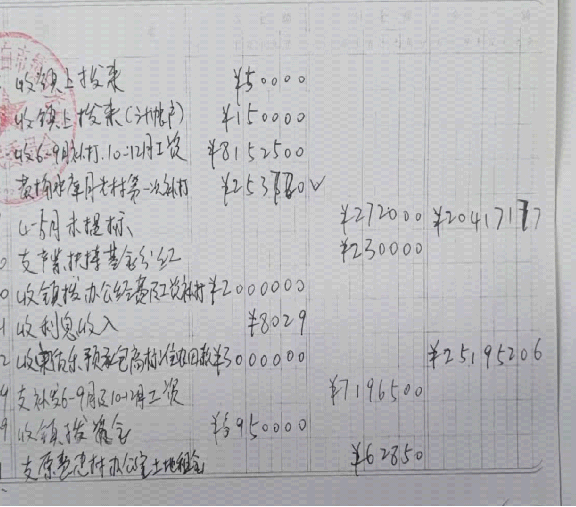 收镇上拨来 ¥50000
收镇上拨来(计帐户) ¥150000
收6-9月补打.10-12月工资 ¥8152500
月 村第一次补打
4-5月未提标 ¥272000 ¥2041717
支产业扶持基金分红 ¥230000
收镇拨办公经费及工资补打 ¥2000000
收利息收入 ¥8029
收 承包商 回款 ¥3000000 ¥25195206
支补发6-9月及10-12月工资 ¥7196500
收镇拨资金 ¥5950000
支原 村办公室土地租金 ¥62850